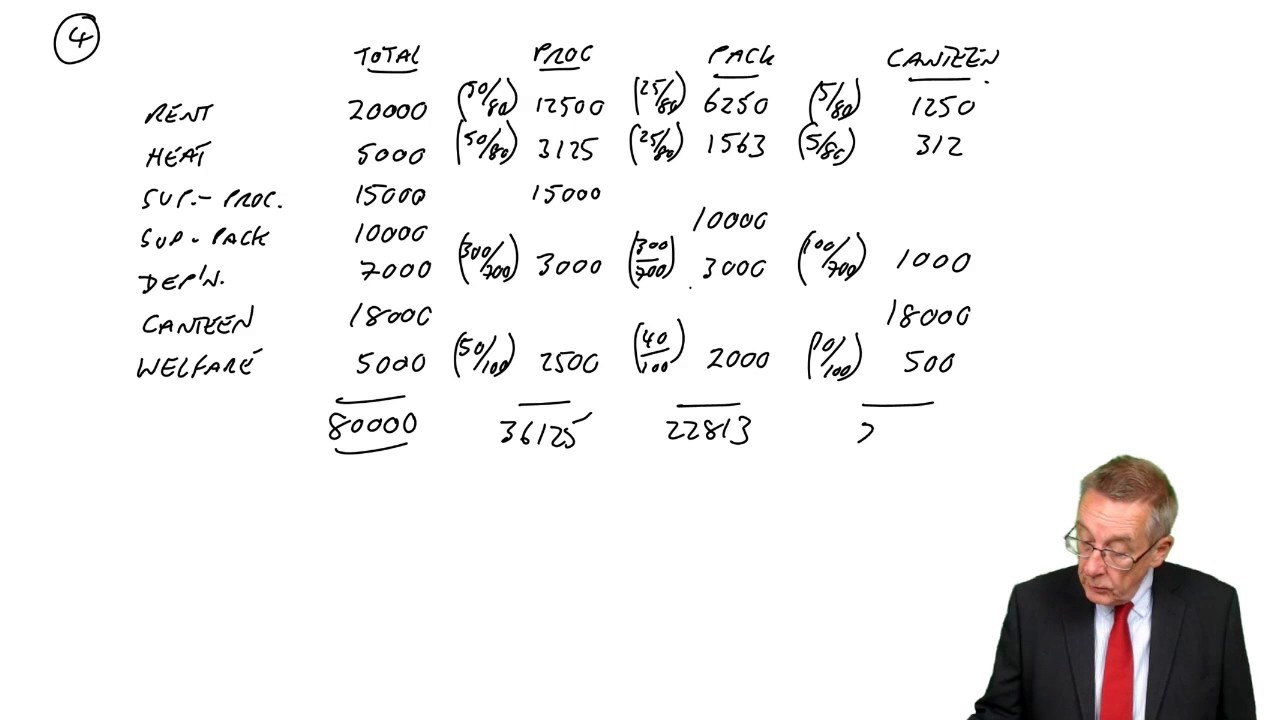 4
TOTAL PROC PACK CANTEEN
RENT 20000 (50/80) 12500 (25/80) 6250 (5/80) 1250
HEAT 5000 (50/80) 3125 (25/80) 1563 (5/80) 312
SUP.- PROC. 15000 15000
SUP - PACK 10000 10000
DEP'N. 7000 (300/700) 3000 (300/700) 3000 (100/700) 1000
CANTEEN 18000 18000
WELFARE 5000 (50/100) 2500 (40/100) 2000 (10/100) 500
80000 36125 22813